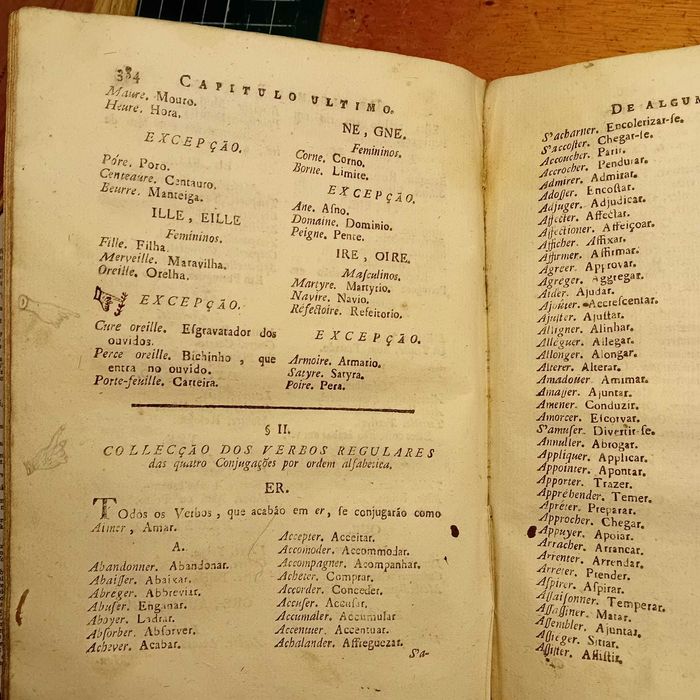 334 CAPITULO ULTIMO.
Maure. Mouro.
Heure. Hora.
EXCEPÇÃO.
Póre. Poro.
Centeaure. Centauro.
Beurre. Manteiga.
ILLE, EILLE
Femininos.
Fille. Filha.
Merveille. Maravilha.
Oreille. Orelha.
EXCEPÇÃO.
Cure oreille. Esgravatador dos
ouvidos.
Perce oreille. Bichinho, que
entra no ouvido.
Porte-feuille. Carteira.
NE, GNE.
Femininos.
Corne. Corno.
Borne. Limite.
EXCEPÇÃO.
Ane. Asno.
Domaine. Dominio.
Peigne. Pente.
IRE, OIRE.
Masculinos.
Martyre. Martyrio.
Navire. Navio.
Réfectoire. Refeitorio.
EXCEPÇÃO.
Armoire. Armario.
Satyre. Satyra.
Poire. Pera.
§ II.
COLLECÇÃO DOS VERBOS REGULARES
das quatro Conjugações por ordem alfabetica.
ER.
Todos os Verbos, que acabão em er, se conjugarão como
Aimer, Amar.
A.
Abandonner. Abandonar.
Abaisser. Abaixar.
Abreger. Abbreviar.
Abuser. Enganar.
Aboyer. Ladrar.
Absorber. Absorver.
Achever. Acabar.
Accepter. Acceitar.
Accomoder. Accommodar.
Accompagner. Acompanhar.
Acheter. Comprar.
Accorder. Conceder.
Accuser. Accusar.
Accumuler. Accumular
Accentuer. Accentuar.
Achalander. Affreguezar.
S'a-
DE ALGUM
S'acharner. Encolerizar-se.
S'accoster. Chegar-se.
Accoucher. Parir.
Accrocher. Pendurar.
Admirer. Admirar.
Adosser. Encostar.
Adjuger. Adjudicar.
Affecter. Affectar.
Affectionner. Affeiçoar.
Afficher. Affixar.
Affirmer. Affirmar.
Agréer. Approvar.
Agréger. Aggregar.
Aider. Ajudar.
Ajoûter. Accrescentar.
Ajuster. Ajustar.
Aligner. Alinhar.
Alléguer. Allegar.
Allonger. Alongar.
Alterer. Alterar.
Amadouer. Amimar.
Amasser. Ajuntar.
Amener. Conduzir.
Amorcer. Escorvar.
S'amuser. Divertir-se.
Annuller. Abrogar.
Appliquer. Applicar.
Appointer. Apontar.
Apporter. Trazer.
Appréhender. Temer.
Apréter. Preparar.
Approcher. Chegar.
Appuyer. Apoiar.
Arracher. Arrancar.
Arrenter. Arrendar.
Arréter. Prender.
Aspirer. Aspirar.
Assaisonner. Temperar.
Assassiner. Matar.
Assembler. Ajuntar.
Assieger. Sitiar.
Assister. Assistir.